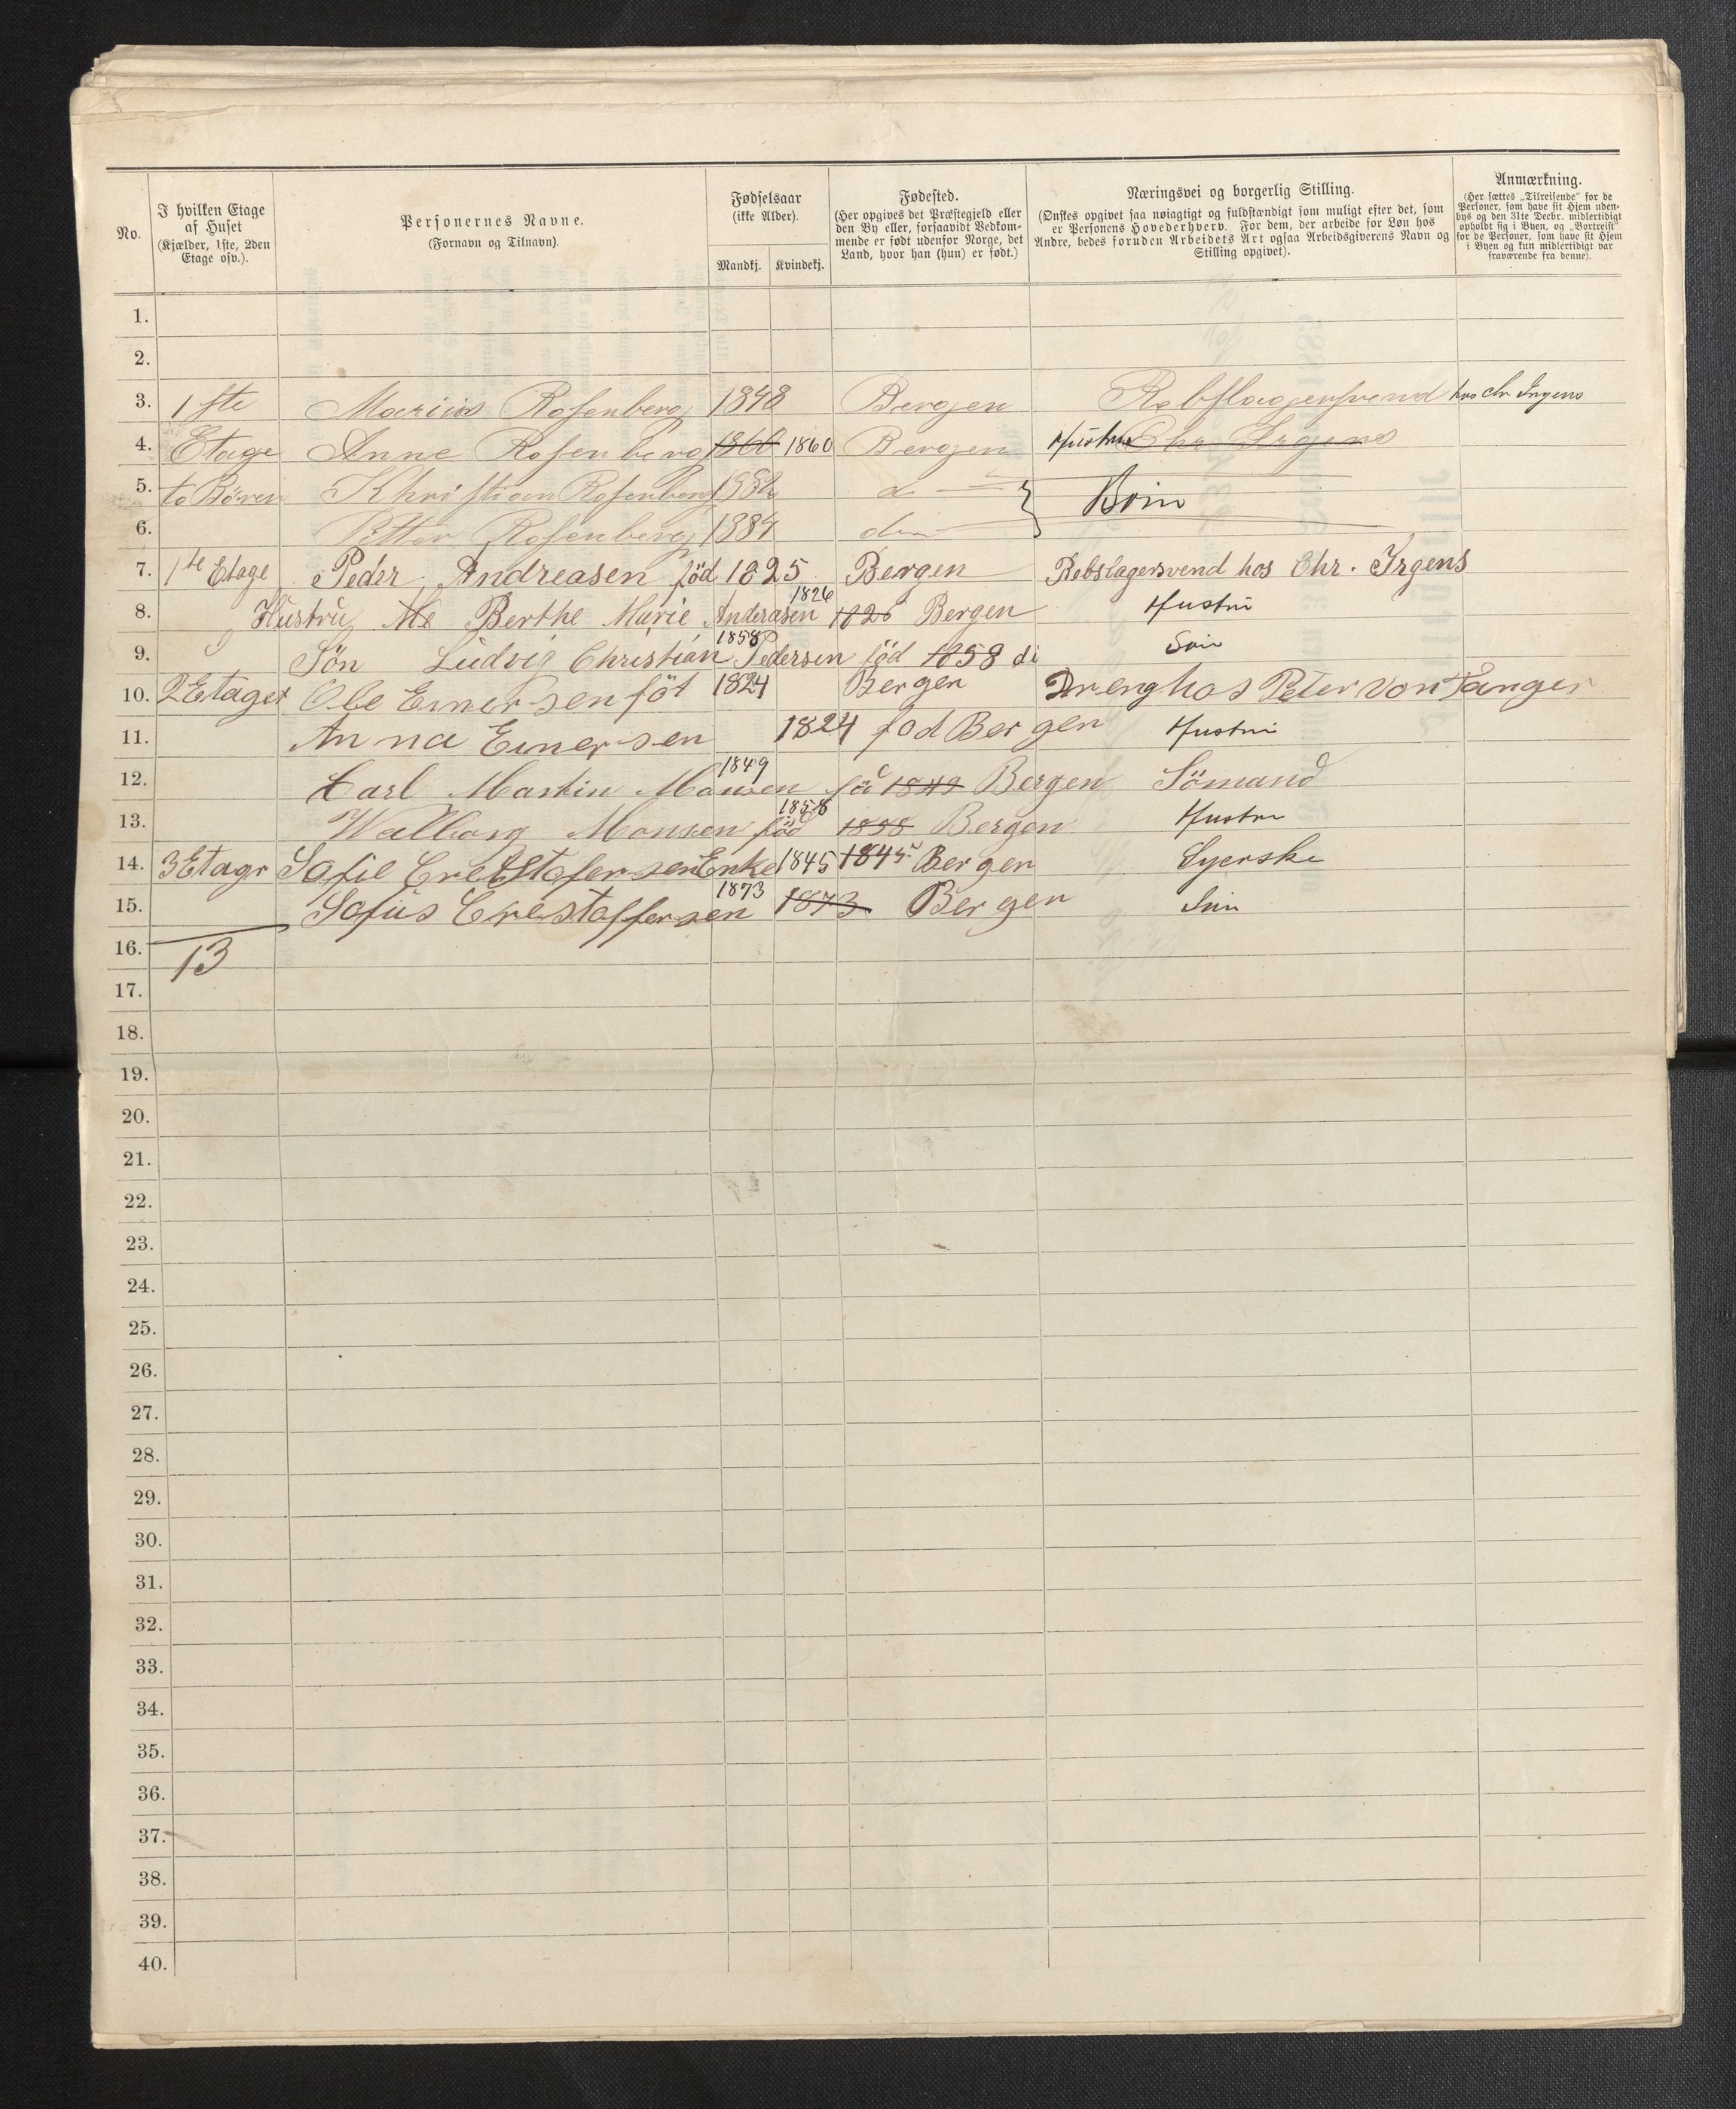 No.
I hvilken Etage af Huset (Kjælder, 1ste, 2den Etage osv.).
Personernes Navne. (Fornavn og Tilnavn).
Fødselsaar (ikke Alder). Mandkj. Kvindekj.
Fødested. (Her opgives det Præstegjeld eller den By eller, forsaavidt Vedkommende er født udenfor Norge, det Land, hvor han (hun) er født.)
Næringsvei og borgerlig Stilling. (Ønskes opgivet saa nøiagtigt og fuldstændigt som muligt efter det, som er Personens Hovederhverv. For dem, der arbeide for Løn hos Andre, bedes foruden Arbeidets Art ogsaa Arbeidsgiverens Navn og Stilling opgivet).
Anmærkning. (Her sættes „Tilreisende" for de Personer, som have sit Hjem udenbys og den 31te Decbr. midlertidigt opholdt sig i Byen, og „Bortreist" for de Personer, som have sit Hjem i Byen og kun midlertidigt var fraværende fra denne).
1.
2.
3. 1ste Marius Rosenberg 1848 Bergen Rebslagersvend hos Chr Irgens
4. Etage Anne Rosenberg 1860 1860 Bergen Hustru Chr Irgens
5. to Børen Khristian Rosenberg 1882 d } Børn
6. Petter Rosenberg 1884 do
7. 1te Etage Peder Andreasen föd 1825 Bergen Rebslagersvend hos Chr. Irgens
8. Hustru Berthe Marie Anderasen 1826 1826 Bergen Hustru
9. Sön Ludvig Christian Pedersen 1858 föd 1858 di Søn
10. 2 Etaget Ole Einersen föt 1824 Bergen Dreng hos Peter von Tanger
11. Anna Einersen 1824 fod Bergen Hustru
12. Carl Martin Monsen 1849 föd 1849 Bergen Sömand
13. Walborg Monsen föd 1858 1858 Bergen Hustru
14. 3 Etagr Sofie Crestofersen Enke 1845 1845 Bergen Syerske
15. Sofus Crestoffersen 1873 1873 Bergen Søn
16. 13
17.
18.
19.
20.
21.
22.
23.
24.
25.
26.
27.
28.
29.
30.
31.
32.
33.
34.
35.
36.
37.
38.
39.
40.